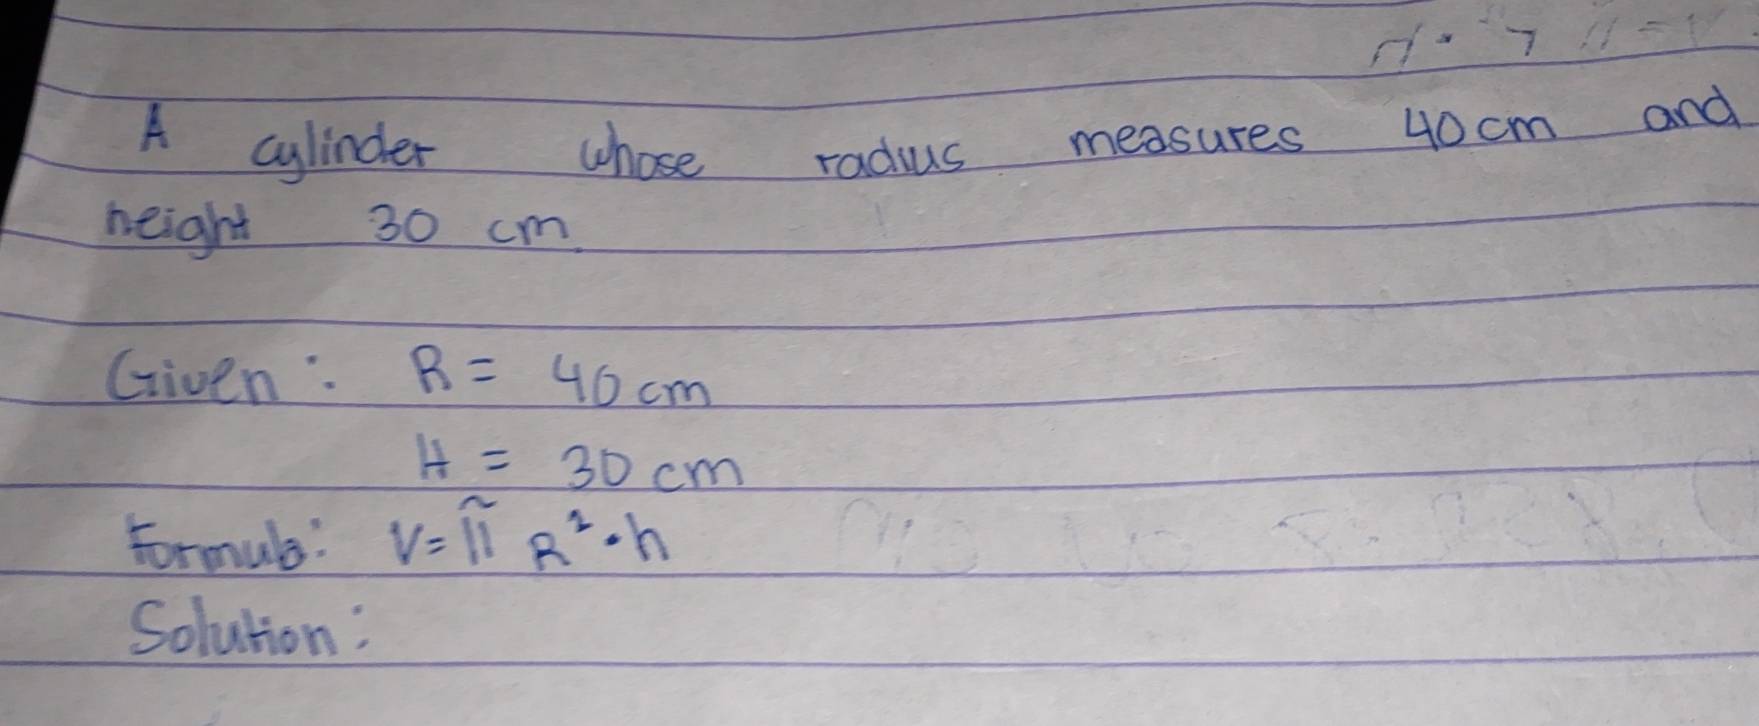 A cylinder whose radius measures 40 cm and
height 30 cm.
Given: R = 40 cm
H = 30 cm
Formula: V = π R² · h
Solution: